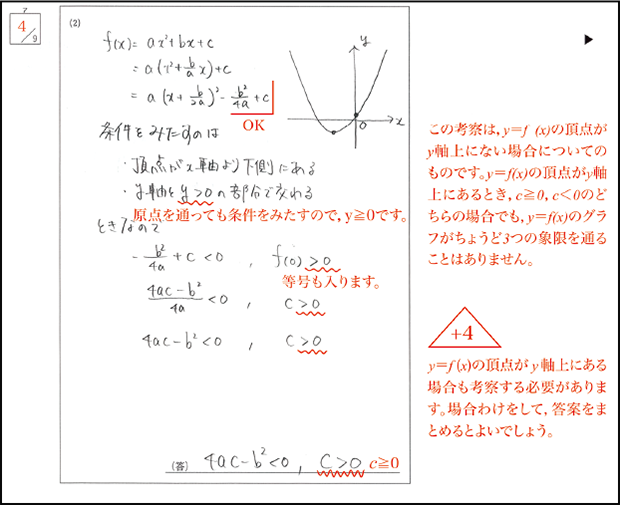 ア
4/9
(2)
f(x) = ax²+bx+c
= a(x²+b/a x)+c
= a(x+b/2a)²-b²/4a+c
OK
y
x
O
条件をみたすのは
・頂点がx軸より下側にある
・y軸とy>0の部分で交わる
原点を通っても条件をみたすので,y≧0です。
ときなので
-b²/4a+c<0 , f(0)>0
等号も入ります。
4ac-b²/4a<0 , c>0
4ac-b²<0 , c>0
(答) 4ac-b²<0 , c>0 c≧0
▶
この考察は,y=f (x)の頂点が
y軸上にない場合についての
ものです。y=f(x)の頂点がy軸
上にあるとき,c≧0,c<0のど
ちらの場合でも,y=f(x)のグラ
フがちょうど3つの象限を通る
ことはありません。
+4
y=f(x)の頂点がy軸上にある
場合も考察する必要がありま
す。場合わけをして,答案をま
とめるとよいでしょう。